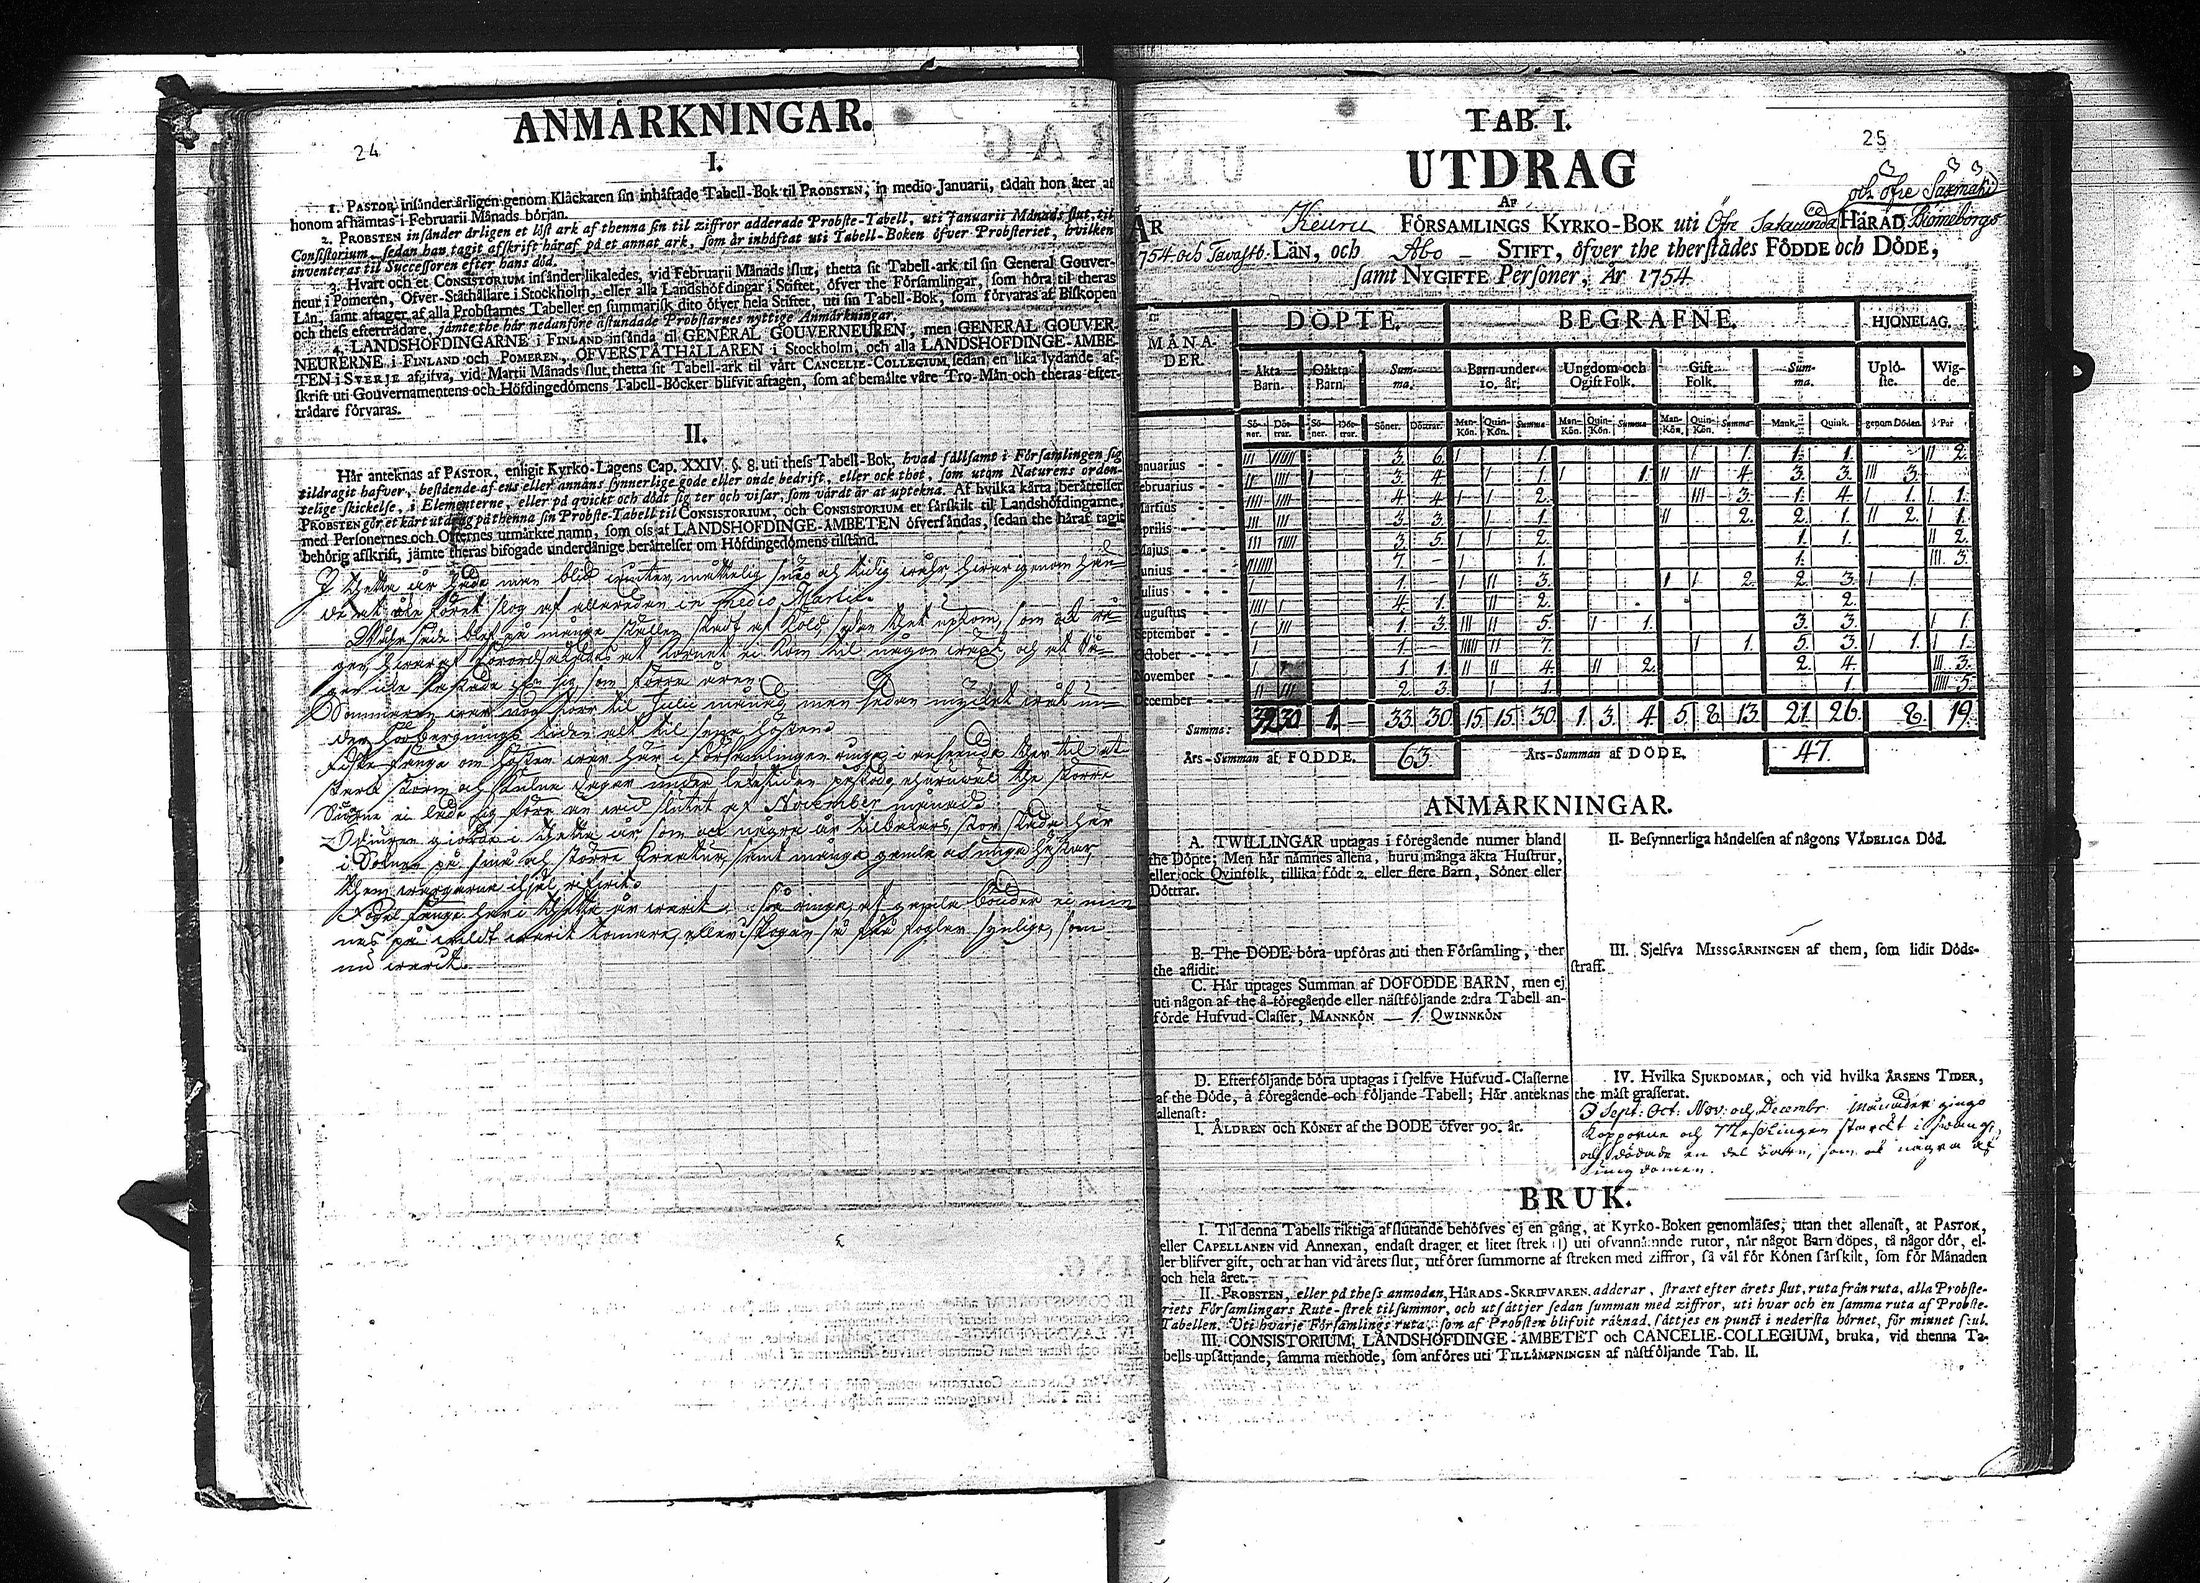 24
ANMÄRKNINGAR.
I.
1. PASTOR insänder årligen genom Klåckaren sin inhäftade Tabell-Bok til PROBSTEN, in medio Januarii, tådan hon åter af
honom afhämtas i Februarii Månads början.
2. PROBSTEN insänder årligen et löst ark af thenna sin til ziffror adderade Probste-Tabell, uti Januarii Månads slut, til
Consistorium, sedan han tagit afskrift häraf på et annat ark, som är inhäftat uti Tabell-Boken öfver Probsteriet, hvilken
inventeras til Successoren efter hans död.
3. Hvart och et CONSISTORIUM insänder likaledes, vid Februarii Månads slut, thetta sit Tabell-ark til sin General Gouver-
neur i Pomeren, Öfver-Ståthållare i Stockholm, eller alla Landshöfdingar i Stiftet, öfver the Församlingar, som höra til theras
Län, samt aftager af alla Probstarnes Tabeller en summarisk dito öfver hela Stiftet, uti sin Tabell-Bok, som förvaras af Biskopen
och thess efterträdare, jämte the här nedanföre åstundade Probstarnes nyttige Anmärkningar.
4. LANDSHÖFDINGARNE i FINLAND insända til GENERAL GOUVERNEUREN, men GENERAL GOUVER-
NEURERNE i FINLAND och POMEREN, ÖFVERSTÅTHÅLLAREN i Stockholm, och alla LANDSHÖFDINGE-ÄMBE-
TEN i SVERJE afgifva, vid Martii Månads slut, thetta sit Tabell-ark til vårt CANCELIE-COLLEGIUM, sedan en lika lydande af-
skrift uti Gouvernamentens och Höfdingedömens Tabell-Böcker blifvit aftagen, som af bemälte våre Tro-Män och theras efter-
trädare förvaras.
II.
Här anteknas af PASTOR, enligit Kyrko-Lagens Cap. XXIV. §. 8. uti thess Tabell-Bok, hvad sällsamt i Församlingen sig
tildragit hafver, bestående af ens eller annans synnerlige gode eller onde bedrift, eller ock thot, som utom Naturens orden-
telige skickelse, i Elementerne, eller på qvickt och dödt sig ter och visar, som värdt är at uptekna. Af hvilka kårta berättelser
PROBSTEN gör et kårt utdrag på thenna sin Probste-Tabell til CONSISTORIUM, och CONSISTORIUM et särskilt til Landshöfdingarne,
med Personernes och Orternes utmärkte namn, som oss af LANDSHÖFDINGE-ÄMBETEN öfversändas, sedan the häraf tagit
behörig afskrift, jämte theras bifogade underdånige berättelser om Höfdingedömens tilstånd.
I thetta år hade man blid winter, måttelig snö och tidig wåhr, hwarigenom hän-
de at åke föret slog af allaredan in medio Martii.
i från sig som förra åren
Sommaren war wög torr til Julii månad men sedan myckit wåt un-
der höbergnings tiden alt til sena hösten
Fiske fånge om hösten war här i församlingen ringa i anseende ther til at
Siögne ei lade sig förr än wid slutet af November månad
Odiuren giorde i thetta år som ock några år tilbakars stor skada här
i Socknen på små och större Kreatur, samt många gamla och unga hästar
them wargarne ihjel rifwit.
Fogel fånge har i thetta år warit så ringa, at gamla bönder ei min-
nas på wildt warit knapare, eller i skogar så få foglar synlige, som
nu warit.
25
TAB. I.
UTDRAG
AF
och öfre Saxmaki
ÅR Keuru FÖRSAMLINGS KYRKO-BOK uti Öfre Satacunda HÄRAD, Biörneborgs
1754. och Tavastb. LÄN, och Åbo STIFT, öfver the therstädes FÖDDE och DÖDE,
samt NYGIFTE Personer, År 1754.
MÅNA-DER. DÖPTE. BEGRAFNE. HJONELAG.
Äkta Barn. Oäkta Barn. Sum-ma. Barn under 10. år. Ungdom och Ogift Folk. Gift Folk. Sum-ma. Uplö-ste. Wig-de.
Sö-ner. Döt-trar. Sö-ner. Döt-trar. Söner. Döttrar. Man-Kön. Quin-Kön. Summa Man-Kön. Quin-Kön. Summa Man-Kön. Quin-Kön. Summa Mank. Quink. genom Döden. Par
Januarius III IIIIII 3. 6. I 1. I 1. 1. 1. II 2.
Februarius III IIII I 3 4 I 1. I 1. II II 4. 3. 3. III 3.
Martius IIII IIII 4 4 I I 2. III 3. 1. 4. I 1. I 1.
Aprilis III III 3. 3. I 1. II 2. 2. 1. II 2. I 1.
Majus III IIIII 3 5 I 2. 1. 1. II 2.
Junius IIIIIII 7. – I 1. 1. III 3.
Julius I 1. – I II 3. I I 2. 2. 3. I 1.
Augustus IIII I 4. 1. II 2. 2.
September I III 1. 3. III II 5. I 1. 3. 3. I 1.
October I 1. – IIIII II 7. I 1. 5. 3. I 1. I 1.
November I I 1. 1. II II 4. II 2. 2. 4. III 3.
December II III 2. 3. I 1. 1. IIIII 5.
Summa: 32 30 1. – 33. 30. 15. 15. 30. 1. 3. 4. 5. 8. 13. 21. 26. 8. 19.
Års-Summan af FÖDDE. 63. Års-Summan af DÖDE. 47.
ANMÄRKNINGAR.
A. TWILLINGAR uptagas i föregående numer bland
the Döpte; Men här nämnes allena, huru många äkta Hustrur,
eller ock Qvinfolk, tillika födt 2. eller flere Barn, Söner eller
Döttrar.
B. The DÖDE böra upföras uti then Församling, ther
the aflidit.
C. Här uptages Summan af DÖFÖDDE BARN, men ej
uti någon af the å föregående eller nästföljande 2:dra Tabell an-
förde Hufvud-Classer, MANNKÖN — 1. QWINNKÖN
D. Efterföljande böra uptagas i sjelfve Hufvud-Classerne
af the Döde, å föregående och följande Tabell; Här anteknas
allenast:
I. ÅLDREN och KÖNET af the DÖDE öfver 90. år.
II. Besynnerliga händelsen af någons VÅDELIGA Död.
III. Sjelfva MISSGÄRNINGEN af them, som lidit Döds-
straff.
IV. Hvilka SJUKDOMAR, och vid hvilka ÅRSENS TIDER,
the mäst grasserat.
I Sept: Oct: Nov: och Decembr. Månader gingo
Kopporne och Messlingen starckt i swang,
och dödade en del barn, som ock några af
Ungdomen.
BRUK.
I. Til denna Tabells riktiga afslutande behöfves ej en gång, at Kyrko-Boken genomläses; utan thet allenast, at PASTOR,
eller CAPELLANEN vid Annexan, endast drager et litet strek (|) uti ofvannämnde rutor, när något Barn döpes, tå någor dör, el-
ler blifver gift, och at han vid årets slut, utförer summorne af streken med ziffror, så väl för Könen särskilt, som för Månaden
och hela året.
II. PROBSTEN, eller på thess anmodan, HÄRADS-SKRIFVAREN adderar, straxt efter årets slut, ruta från ruta, alla Probste-
riets Församlingars Rute-strek til summor, och utsättjer sedan summan med ziffror, uti hvar och en samma ruta af Probste-
Tabellen. Uti hvarje Församlings ruta, som af Probsten blifvit räknad, sättjes en punct i nedersta hörnet, för minnet skul.
III. CONSISTORIUM, LANDSHÖFDINGE-ÄMBETET och CANCELIE-COLLEGIUM, bruka, vid thenna Ta-
bells upsättjande, samma methode, som anföres uti TILLÄMPNINGEN af nästföljande Tab. II.